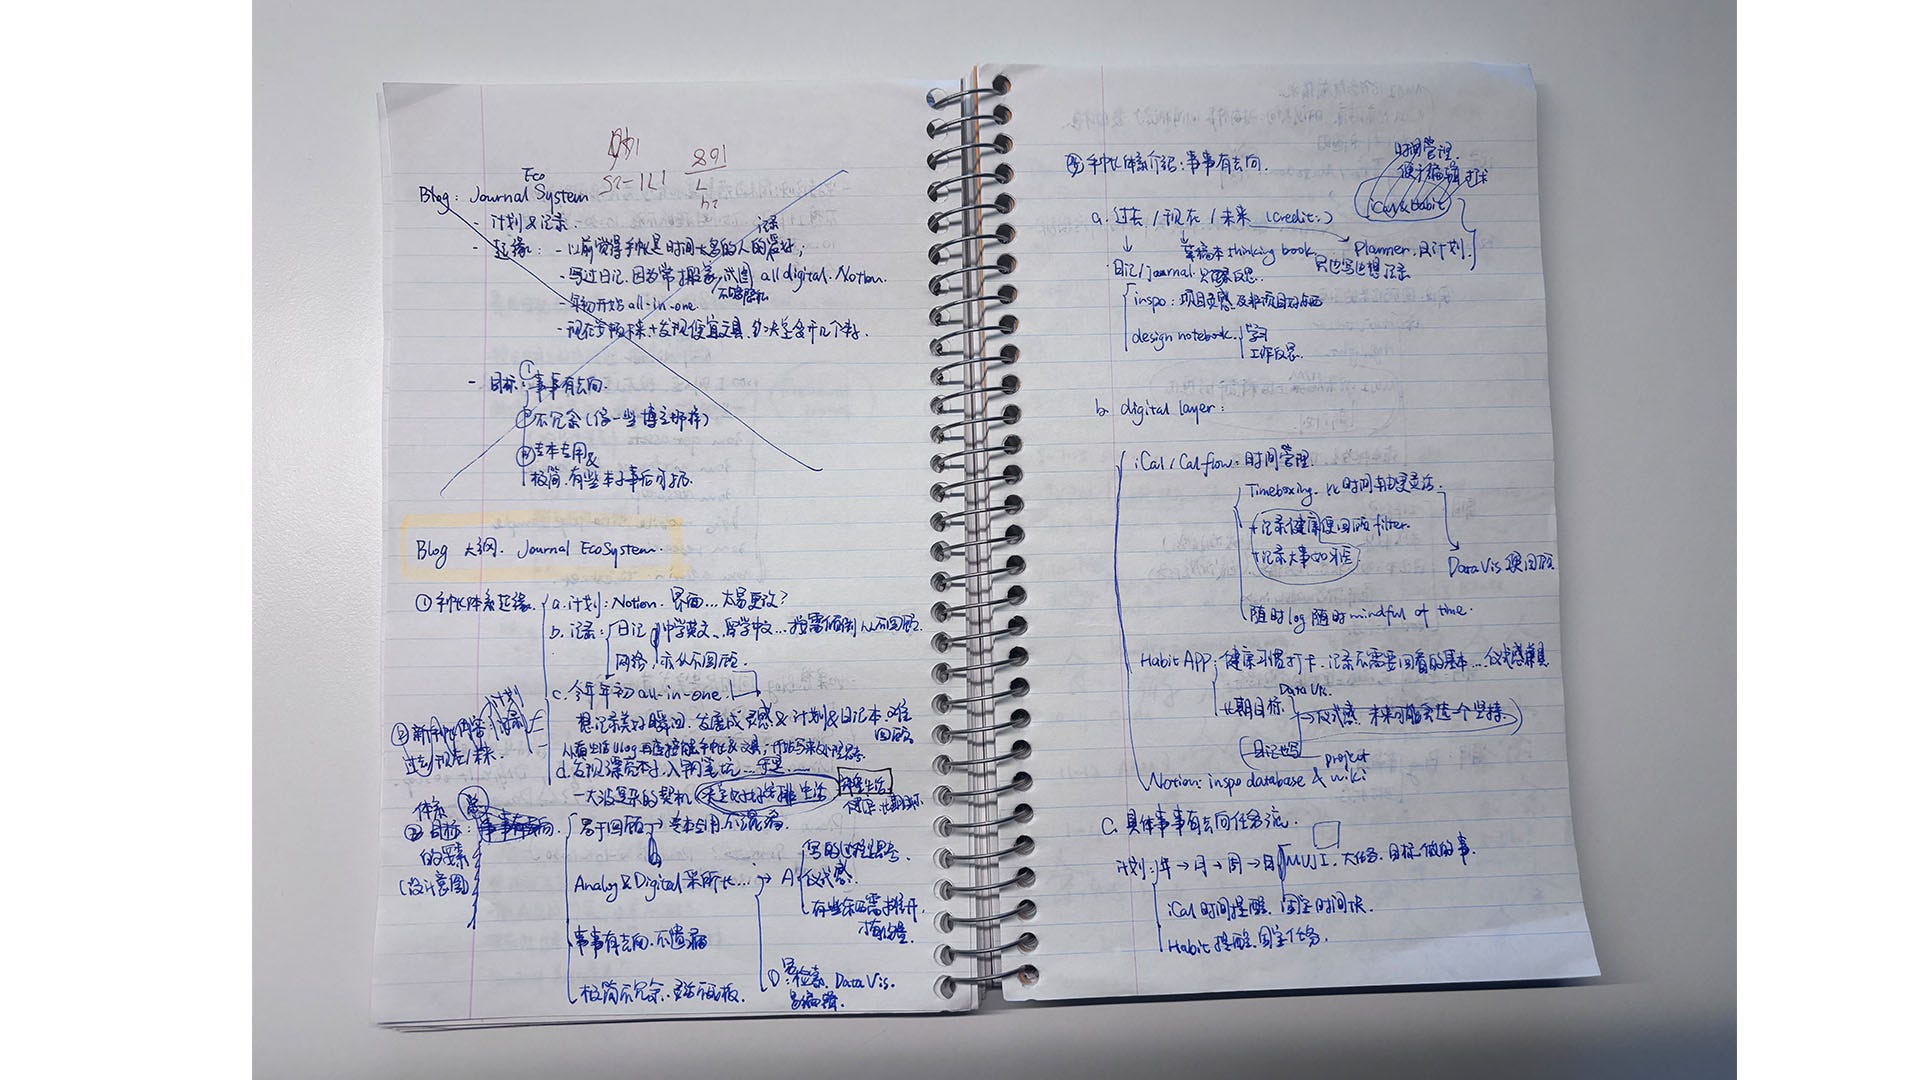 Eco
Blog: Journal System
- 计划&记录.
- 起缘: - 以前觉得手帐是时间太多的人的爱好;
记录
- 写过日记.因为常搬家,试图 all digital. Notion.
- 年初开始 all-in-one.
不够隐私
- 现在 + 发现便宜文具, 决定多开几个本子.
- 目标: ① 事事有去向.
② 不冗余(像一些博主那样)
③ 专本专用&
极简.有些本子事后可扔.
Blog 大纲. Journal EcoSystem.
① 手帐体系起缘.
a. 计划: Notion. 界面... 太易更改?
b. 记录: 日记 中学英文、留学中文... 从不回顾.
网络, 亦从不回顾.
c. 今年年初 all-in-one.
想记录美好瞬间, 发展成灵感&计划&日记本.难回顾
d. 发现漂亮本子, 入钢笔坑... 于是......
一大波复杂的契机 决定好好安排生活
② 新手帐内容 计划 记录
过去/现在/未来.
体系
③ 目标:
的要素
(设计意图)
易于回顾 → 专本专用不混淆.
Analog & Digital 采所长... → A 仪式感.
写的过程思考.
有些东西需摊开,
事事有去向.不遗漏
D: 易检索. Data Vis.
易编辑.
极简不冗余.灵活不死板.
④ 手帐体系介绍: 事事有去向.
时间管理.
便于编辑
iCal & Habit
a. 过去 / 现在 / 未来 (credit: )
草稿本 thinking book.
Planner. 日计划.
日记/journal. 反思.
inspo: 项目灵感及非项目好东西
design notebook. 学习
工作反思.
b. digital layer:
iCal / Calflow: 时间管理.
Timeboxing. 比时间轴更灵活.
+ 记录健康便回顾 filter.
+ 记录大事如牙医
Data Vis 便回顾
随时 log 随时 mindful of time.
Habit APP: 健康习惯打卡. 记录不需要回看的基本... 仪式感
长期目标.
Data Vis.
→ 仪式感. 未来可能会选一个坚持.
日记也写
project
Notion: inspo database & wiki
C. 具体事事有去向任务流.
计划: 年 → 月 → 周 → 日 MUJI. 大任务. 目标.做的事.
iCal 时间提醒. 固定时间块.
Habit 提醒. 固定任务.